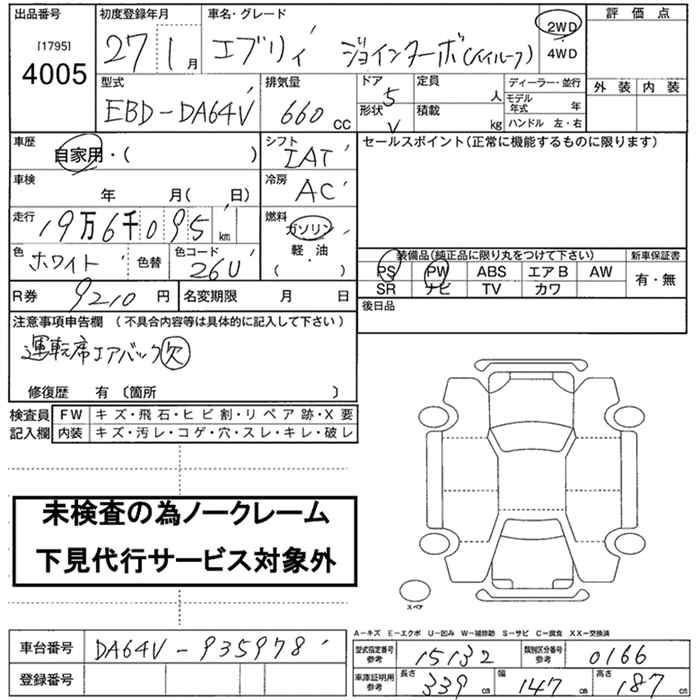 出品番号 初度登録年月 車名・グレード 評価点
[1795] 4005 27 1月 エブリィ ジョインターボ(ハイルーフ) 2WD 4WD
型式 排気量 ドア 定員 ディーラー・並行 外装 内装
EBD-DA64V 660cc 5 人 モデル年式 年
形状 積載 ハンドル 左・右
V kg
車歴 シフト セールスポイント(正常に機能するものに限ります)
自家用・( ) IAT
車検 冷房
年 月(日) AC
走行 燃料
19万6千095km ガソリン
軽・油
( )
色 色替 色コード 装備品(純正品に限り丸をつけて下さい) 新車保証書
ホワイト 26U PS PW ABS エアB AW 有・無
SR ナビ TV カワ
R券 9210円 名変期限 月 日 後日品
注意事項申告欄(不具合内容等は具体的に記入して下さい)
運転席エアバック欠
修復歴 有〔箇所 〕
検査員 FW キズ・飛石・ヒビ割・リペア跡・X要
記入欄 内装 キズ・汚レ・コゲ・穴・スレ・キレ・破レ
未検査の為ノークレーム
下見代行サービス対象外
スペア
A-キズ E-エクボ U-凹み W-補修跡 S-サビ C-腐食 XX-交換済
車台番号 DA64V-935978
登録番号
型式指定番号 参考 15132 類別区分番号 参考 0166
車庫証明用 参考 長さ 339cm 幅 147cm 高さ 187cm